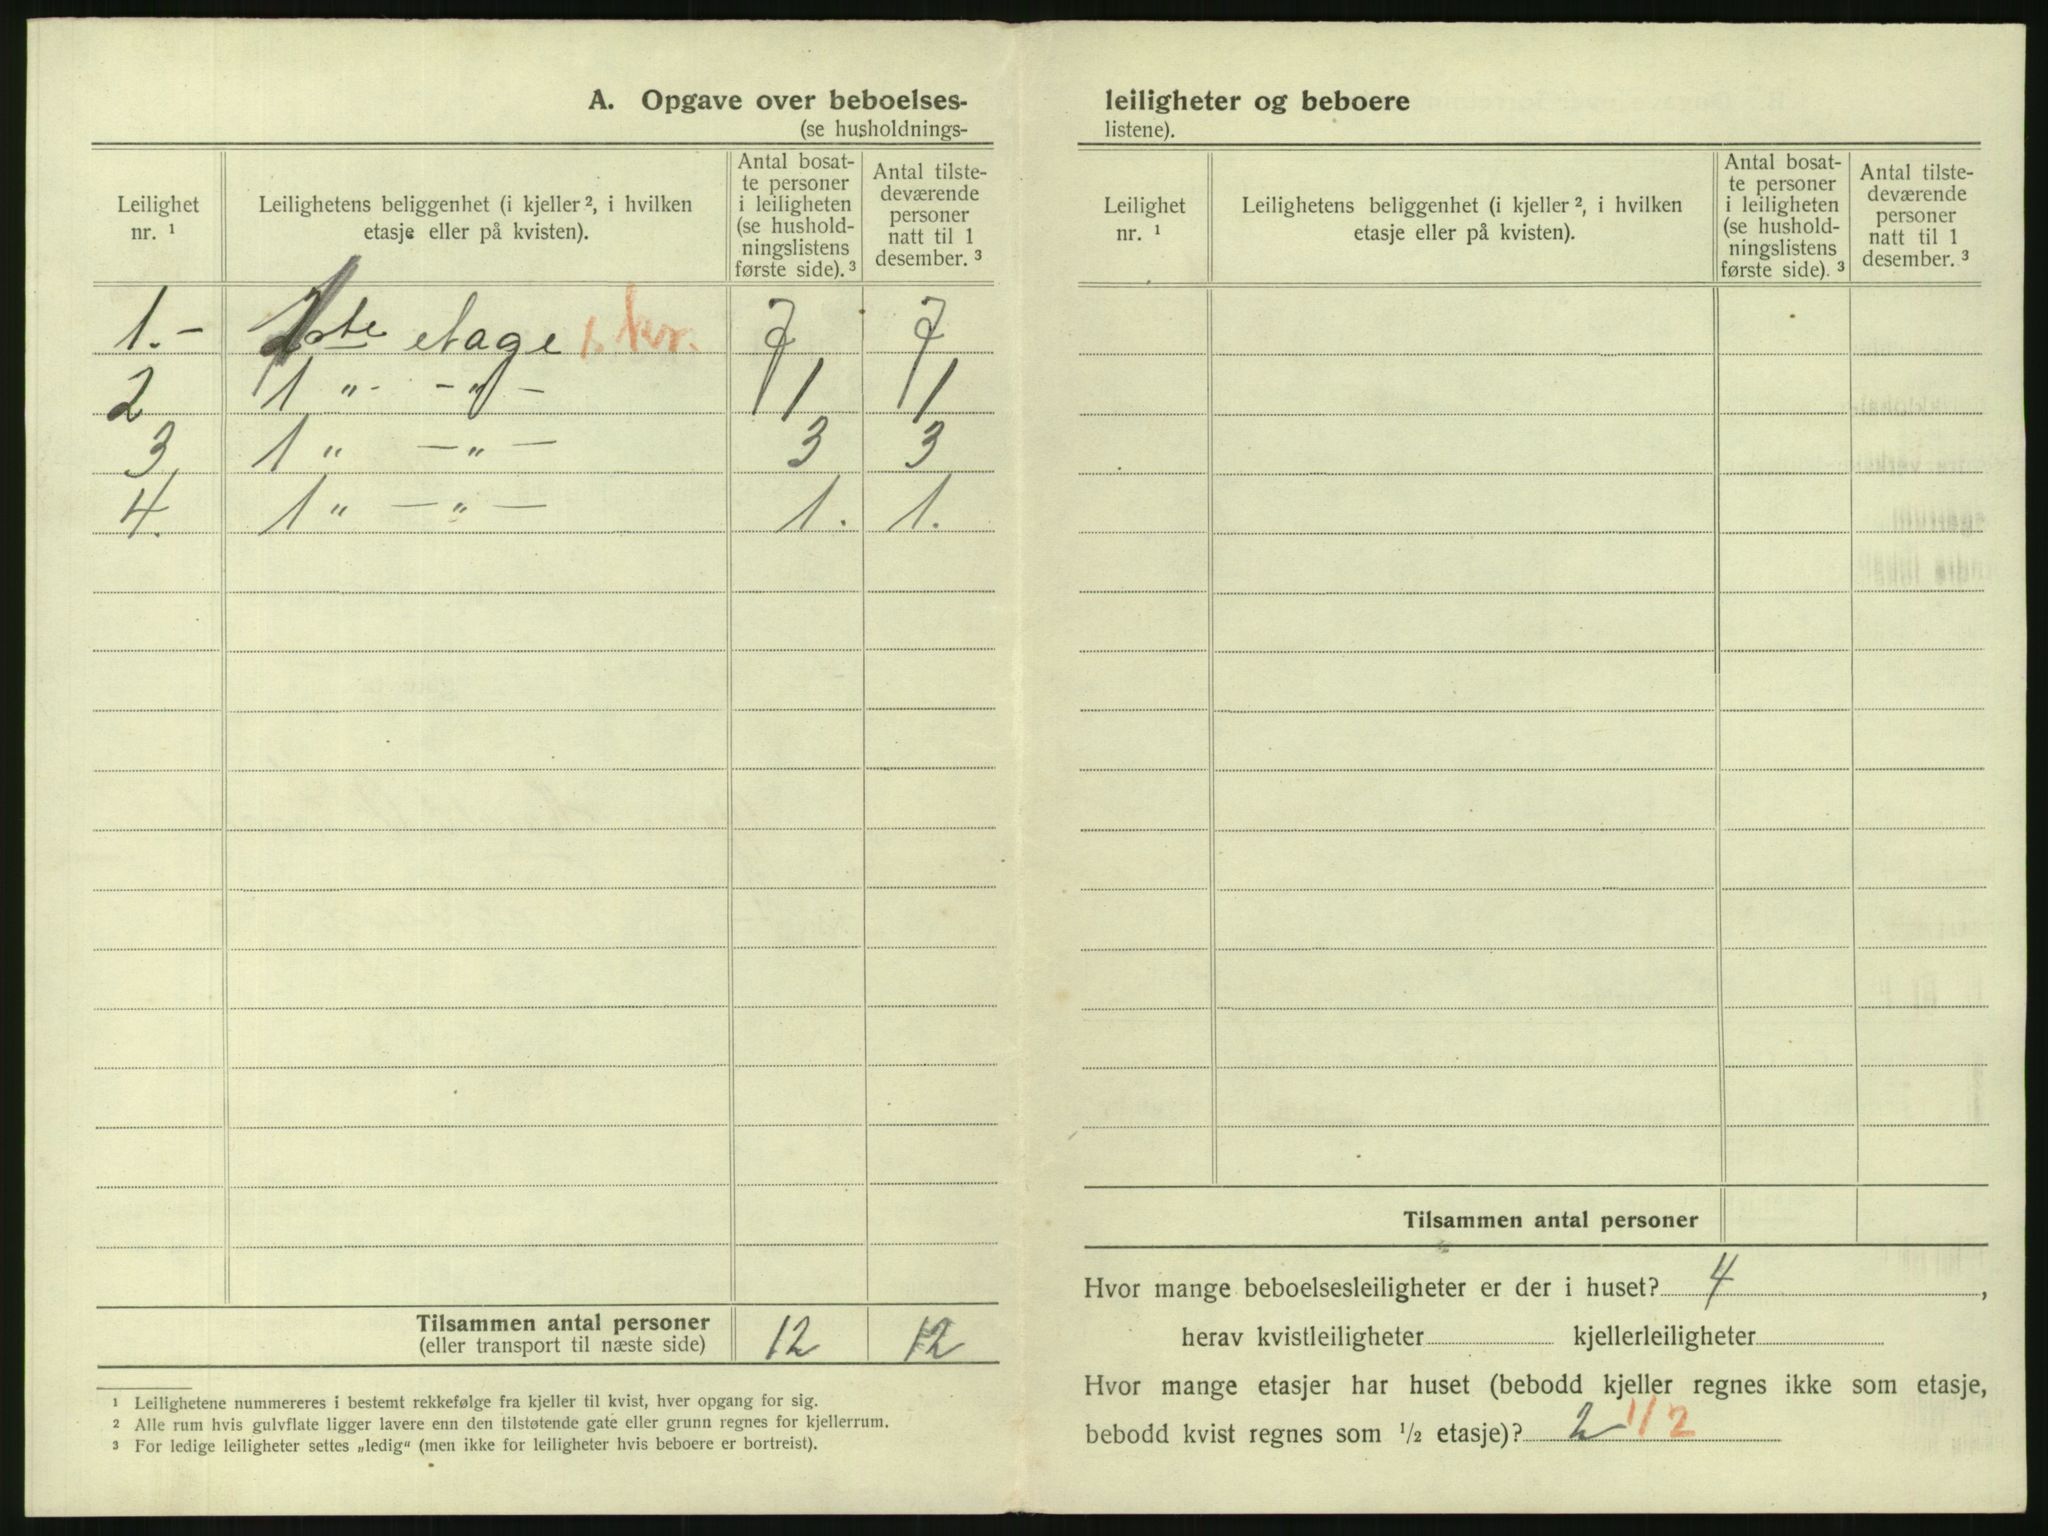 A. Opgave over beboelses-
(se husholdnings-
Leilighet nr. ¹
Leilighetens beliggenhet (i kjeller ², i hvilken etasje eller på kvisten).
Antal bosat-
te personer
i leiligheten
(se hushold-
ningslistens
første side). ³
Antal tilste-
deværende
personer
natt til 1
desember. ³
1.- 1ste etage 1. kv. 7 7
2 1 " - - " - 1 1
3 1 " - " - 3 3
4. 1 " - " - 1. 1.
Tilsammen antal personer 12 12
(eller transport til næste side)
¹ Leilighetene nummereres i bestemt rekkefølge fra kjeller til kvist, hver opgang for sig.
² Alle rum hvis gulvflate ligger lavere enn den tilstøtende gate eller grunn regnes for kjellerrum.
³ For ledige leiligheter settes „ledig“ (men ikke for leiligheter hvis beboere er bortreist).
leiligheter og beboere
listene).
Leilighet nr. ¹
Leilighetens beliggenhet (i kjeller ², i hvilken etasje eller på kvisten).
Antal bosat-
te personer
i leiligheten
(se hushold-
ningslistens
første side). ³
Antal tilste-
deværende
personer
natt til 1
desember. ³
Tilsammen antal personer
Hvor mange beboelsesleiligheter er der i huset? 4,
herav kvistleiligheter kjellerleiligheter
Hvor mange etasjer har huset (bebodd kjeller regnes ikke som etasje,
bebodd kvist regnes som ½ etasje)? 2 1/2